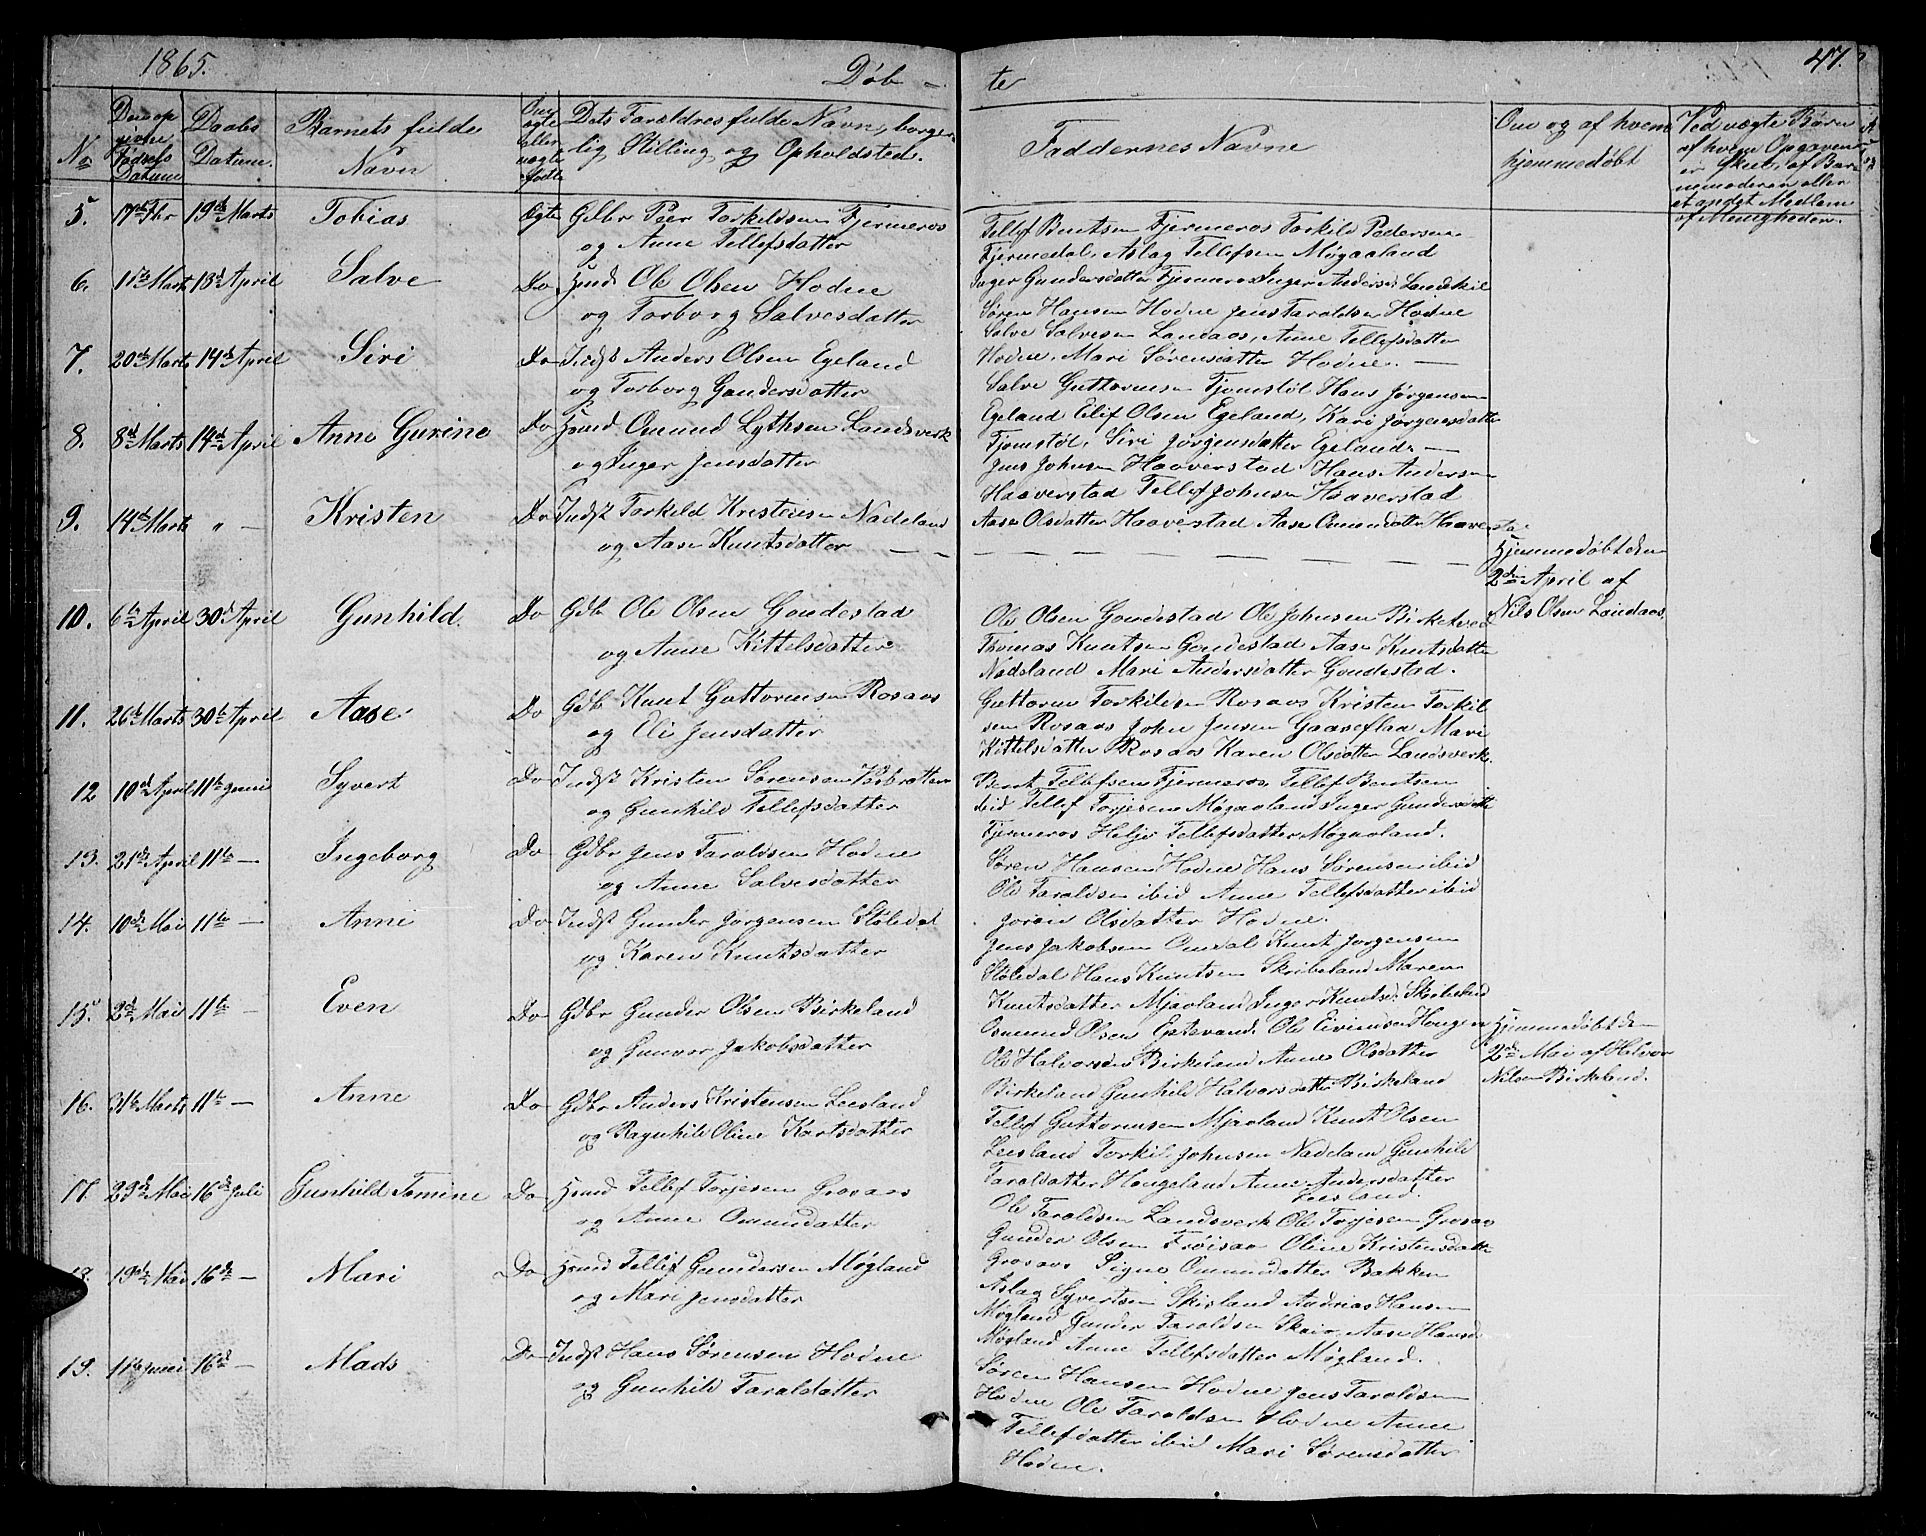 1865.
Døb -
te
47.
No
Den op
givne
Fødsels
Datum
Daabs
Datum.
Barnets fulde
Navn
Om
ægte
eller
uægte
født
Dets Forældres fulde Navn, borger-
lig Stilling og Opholdsted.
Faddernes Navne
Om og af hvem
hjemmedøbt
Ved uægte Børn
af hvem Opgaven
er skeet, af Bar-
nemoderen eller
et andet Medlem
af Menigheden.
5. 17de Fbr 19de Marts Tobias Ægte Gdbr Peer Torkildsen Fjermeros
og Anne Tellefsdatter
Tellef Bentsen Fjermeros Torkild Pedersen
Fjermedal, Aslag Tellefsen Møgaaland
Inger Gundersdatter Fjermeros Inger Andersd Landskil
6. 11te Marts 13d April Salve Do Huud Ole Olsen Hodne
og Torborg Salvesdatter
Søren Hansen Hodne Jens Taraldsen Hodne
Salve Salvesen Landaas, Anne Tellefsdatter
Hodne, Mari Sørensdatter Hodne. —
7. 20de Marts 14d April Siri Do Indst Anders Olsen Egeland
og Torborg Gundersdatter
Salve Guttormsen Fjomstøl Hans Jørgensen
Egeland Eilif Olsen Egeland, Kari Jørgensdatter
Fjomstøl, Siri Jørgensdatter Egeland. —
8. 8d Marts 14d April Anne Gurine Do Huud Omund Lythsen Landsverk
og Inger Jensdatter
Jens Johnsen Haaverstad Hans Andersen
Haaverstad Tellef Johnsen Haaverstad
Aase Olsdatter Haaverstad Aase Omundatter Haaversta
9. 14de Marts „ — Kristen Do Indst Torkild Kristensen Nadeland
og Aase Knutsdatter — —
— — — — — — — —
Hjemmedøbt den
2den April af
Nils Olsen Landaas.
10. 6te April 30d April Gunhild. Do Gdb Ole Olsen Goudestad
og Anne Kittelsdatter
Ole Olsen Goudestad Ole Johnsen Birketved
Thomas Knutsen Goudestad Aase Knutsdatter
Nadeland Mari Andersdatter Goudestad.
11. 26de Marts 30te April Aase Do Gdb Knut Guttormsen Rosaas
og Eli Jensdatter
Guttorm Torkildsen Rosaas Kristen Torkil
sen Rosaas John Jensen Gaaseflaa Mari
Kittelsdatter Rosaas Karen Olsdatter Landsverk.
12 10d April 11te Juni Syvert Do Indst Kristen Sørensen
og Gunhild Tellefsdatter
Bent Tellefsen Fjermeros, Tellef Bentsen
ibid Tellef Torjesen Møgaaland Inger Gundersdatte
Fjermeros Helje Tellefsdatter Møgaaland.
13. 21de April 11te — Ingeborg Do Gdbr Jens Taraldsen Hodne
og Anne Salvesdatter
Søren Hansen Hodne Hans Sørensen ibid
Ole Taraldsen ibid Anne Tellefsdatter ibid
Joren Olsdatter Hodne.
14. 10de Mai 11te — Anne Do Indst Gunder Jørgensen Støledal
og Karen Knutsdatter
Jens Jakobsen Omdal Knut Jørgensen
Støledal Hans Knutsen Skribeland Maren
Knutsdatter Mjaaland, Inger Knutsd. Skribeland
15. 2de Mai 11te — Even Do Gdbr Gunder Olsen Birkeland
og Gunvor Jakobsdatter
Osmund Olsen Ole Eivensen Hougen
Ole Halvorsen Birkeland Anne Olsdatter
Birkeland Gunhild Halvorsdatter Birkeland
Hjemmedøbt den
2de Mai af Halvor
Nilsen Birkeland.
16. 31te Marts 11te — Anne Do Gdbr Anders Kristensen Leesland
og Ragnhild Oline Kortsdatter
Tellef Guttormsen Mjaaland Knut Olsen
Leesland Torkil Johnsen Nadelan Gunhild
Taraldatter Hougeland Anne Andersdatter
Leesland.
17. 23de Mai 16de Juli Gunhild Tomine Do Huud Tellef Torjesen Grosaas
og Anne Omundatter
Ole Taraldsen Landsverk Ole Torjesen Grosaas
Gunder Olsen Frøisaa Oline Kristensdatter
Grosaas Signe Omundatter Bakken
18. 19de Mai 16de — Mari Do Huud Tellef Gundersen Møgland
og Mari Jensdatter
Aslag Syvertsen Skisland Andrias Hansen
Møgland Gunder Taraldsen Skaio Aase Hansd
Møgland Anne Tellefsdatter Møgland.
19. 11te Juni 16d — Mads Do Indst Hans Sørensen Hodne
og Gunhild Taraldatter
Søren Hansen Hodne Jens Taraldsen
Hodne Ole Taraldsen Hodne Anne
Tellefsdatter ibid Mari Sørensdatter
Hodne.